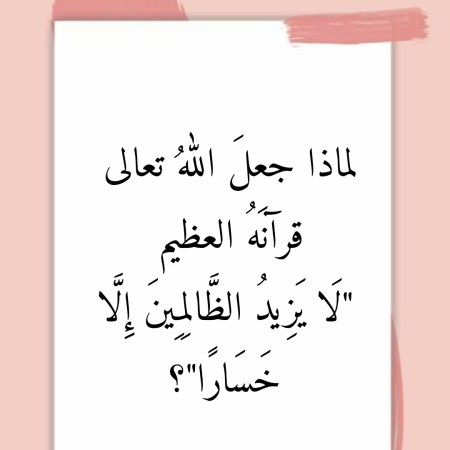 لماذا جعلَ اللهُ تعالى
قرآنَهُ العظيم
"لَا يَزِيدُ الظَّالِمِينَ إِلَّا
خَسَارًا"؟